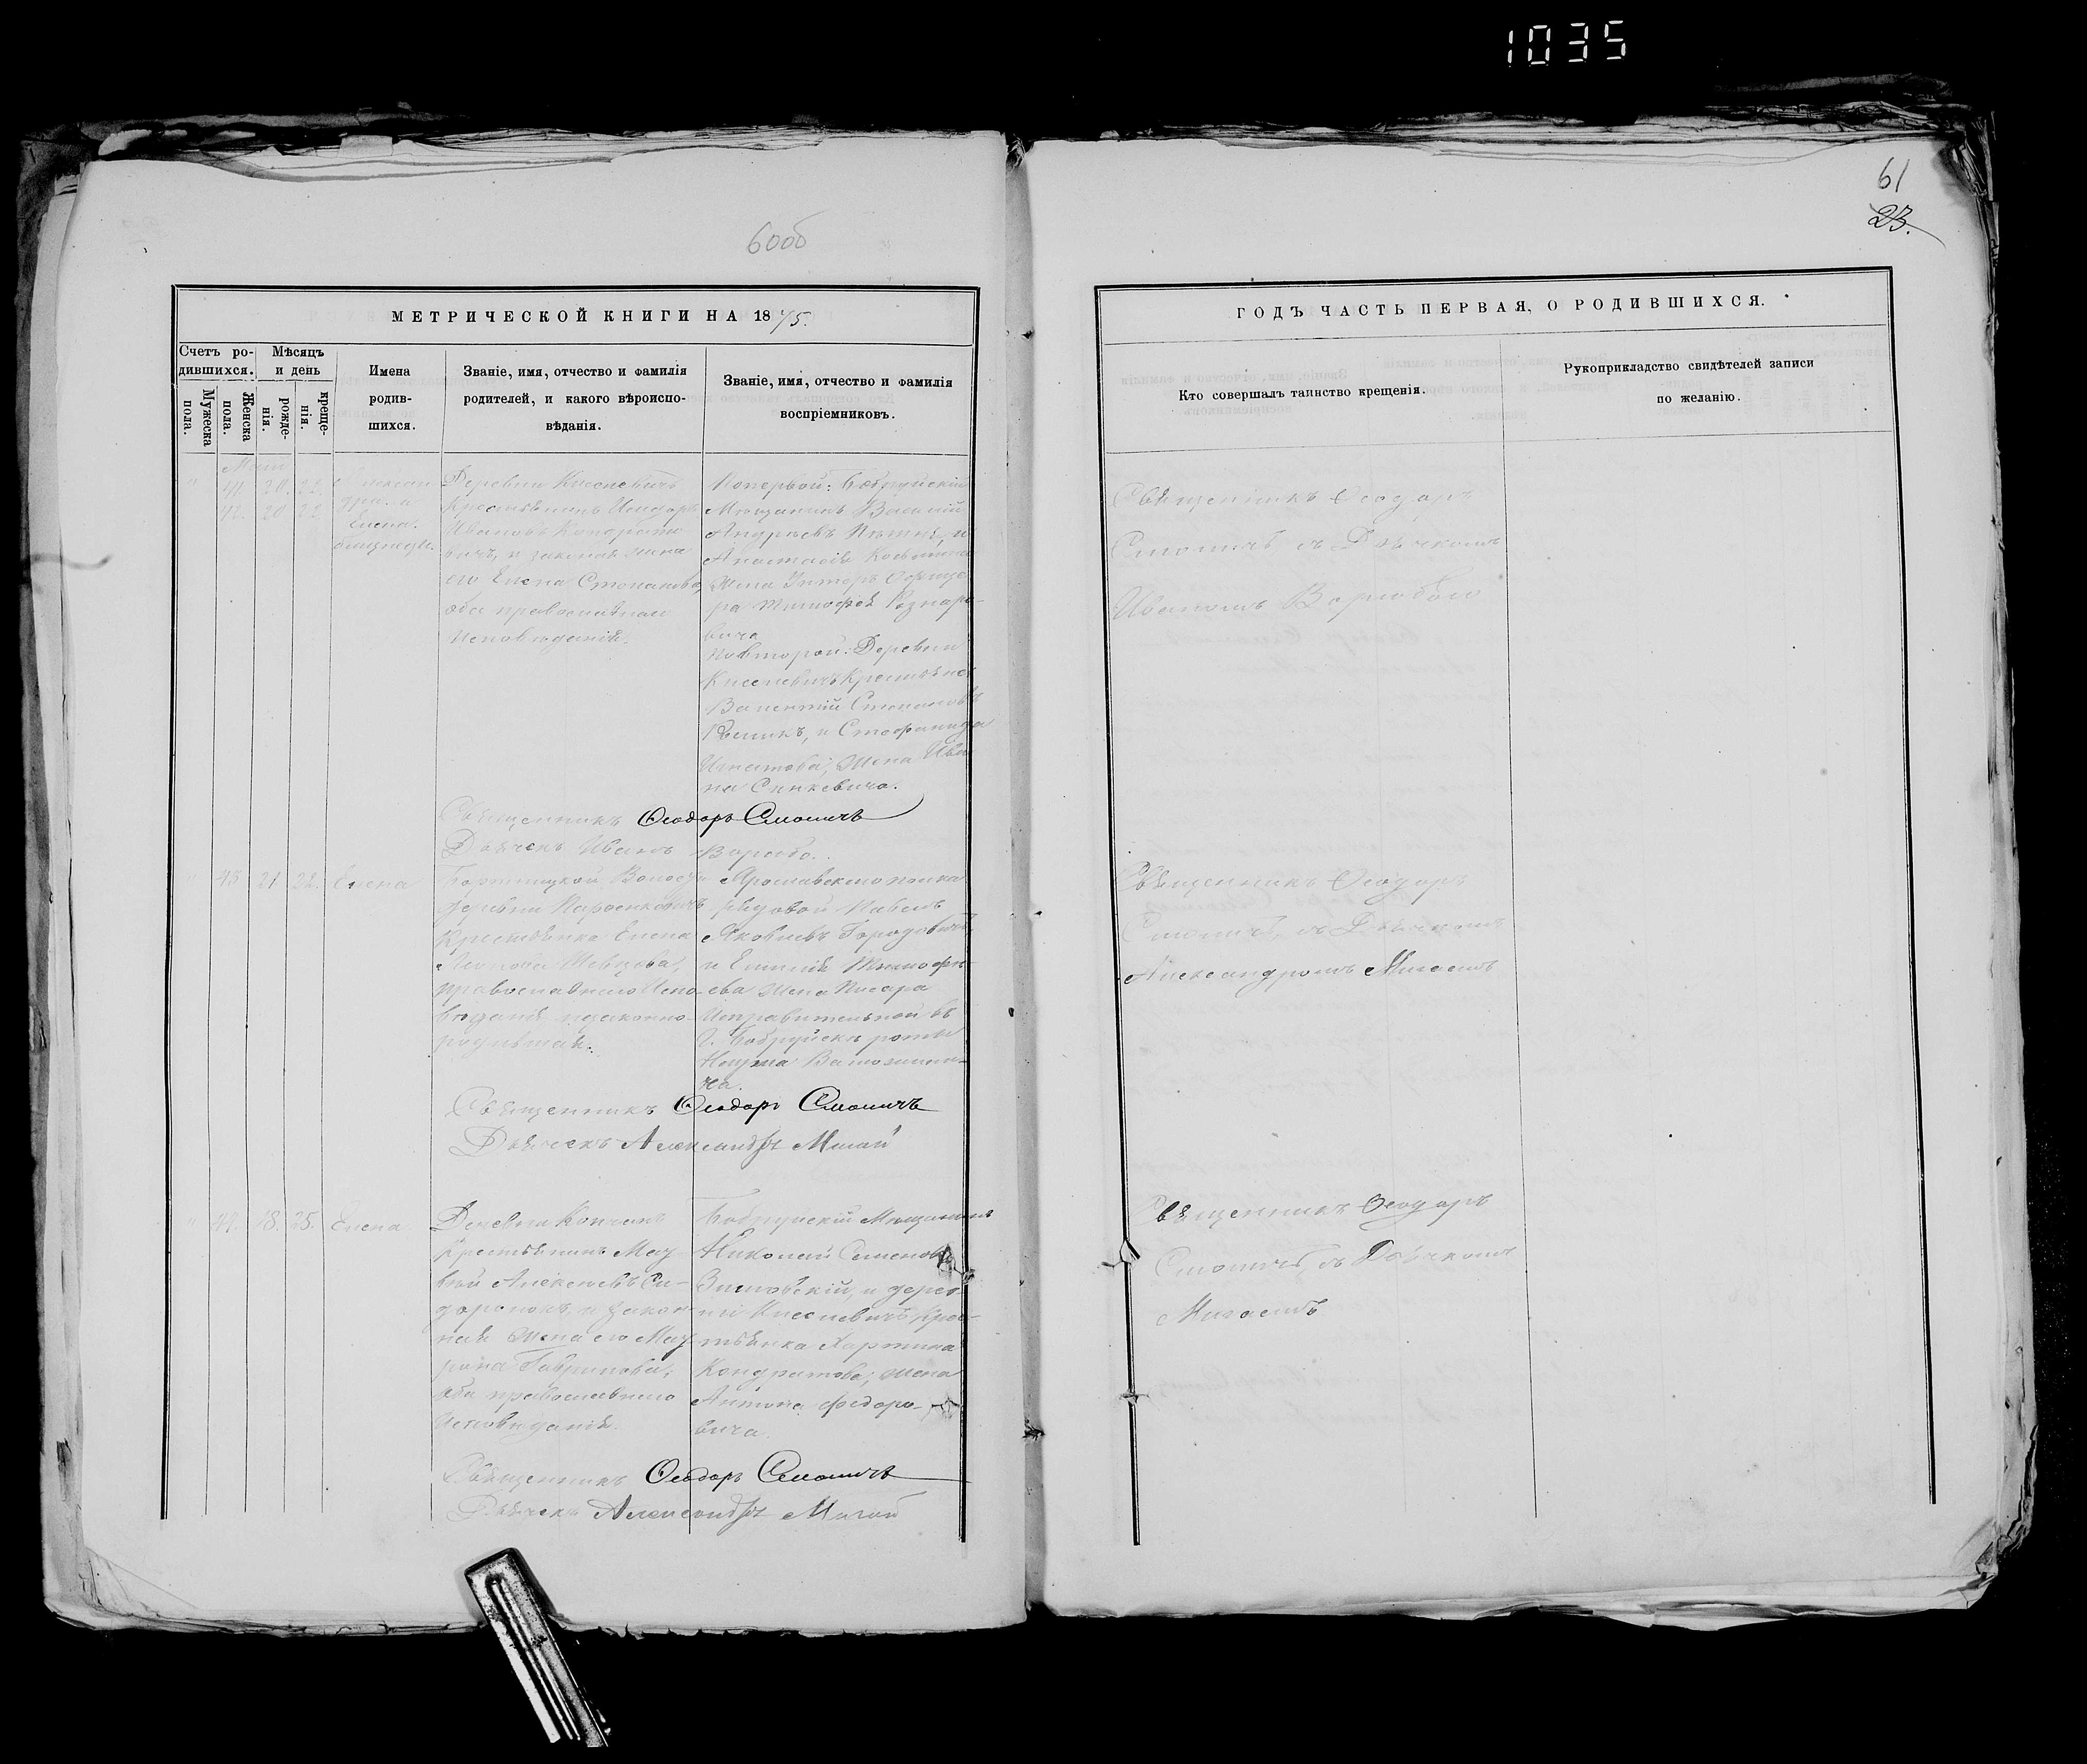 1035
61
23.
60об
МЕТРИЧЕСКОЙ КНИГИ НА 1875.
Счетъ ро-
дившихся.
Мѣсяцъ
и день
Мужеска
пола.
Женска
пола.
рожде-
нія.
креще-
нія.
Имена
родив-
шихся.
Званіе, имя, отчество и фамилія
родителей, и какого вѣроиспо-
вѣданія.
Званіе, имя, отчество и фамилія
воспріемниковъ.
Май
" 41. 20. 22.
42. 20 22
Алексан
дра и
Елена.
близнецы.
Деревни Киселевичъ
Крестьянинъ Исидоръ
Ивановъ
и законная жена
его Елена Степанова,
оба православнаго
Исповѣданія.
Попервой: Бобруйскій
Мѣщанинъ Василій
Андреевъ и
Анастасія
Жена Унтеръ Офице
ра Тимофея
вича
Повторой: Деревни
Киселевичъ Крестьянинъ
Валентій Степановъ
и Стефанида
Игнатова, жена Ива
на Синкевича.
Священникъ Ѳеодоръ Смоличъ
Дьячекъ Иванъ Воробьо.
" 43 21 22. Елена
Бортницкой Волости
деревни
Крестьянка Елена
Шевцова,
православнаго Испо
вѣданія незаконно-
родившая.
Ярославскаго полка
рядовой Павелъ
Яковлевъ Городовичъ
и Емилія Тимофѣ-
ева жена Писаря
Исправительной въ
г. Бобруйскѣ роты
Наума
ча.
Священникъ Ѳеодоръ Смоличъ
Дьячекъ Александръ Мигай
" 44. 18. 25. Елена
Деревни
Крестьянинъ
Алексѣевъ Си-
доронокъ, и закон
ная жена его Мат
рона Гаврилова,
оба православнаго
Исповѣданія.
Бобруйскій Мѣщанинъ
Николай Семеновъ
и дерев
ни Киселевичъ Крес-
тьянка
Кондратова, жена
Антона Федоро-
вича.
Священникъ Ѳеодоръ Смоличъ
Дьячекъ Александръ Мигай
ГОДЪ ЧАСТЬ ПЕРВАЯ, О РОДИВШИХСЯ.
Кто совершалъ таинство крещенія.
Рукоприкладство свидѣтелей записи
по желанію.
Священникъ Ѳеодоръ
Смоличъ съ Дьячкомъ
Иваномъ
Священникъ Ѳеодоръ
Смоличъ съ Дьячкомъ
Александромъ Мигаемъ
Священникъ Ѳеодоръ
Смоличъ съ Дьячкомъ
Мигаемъ